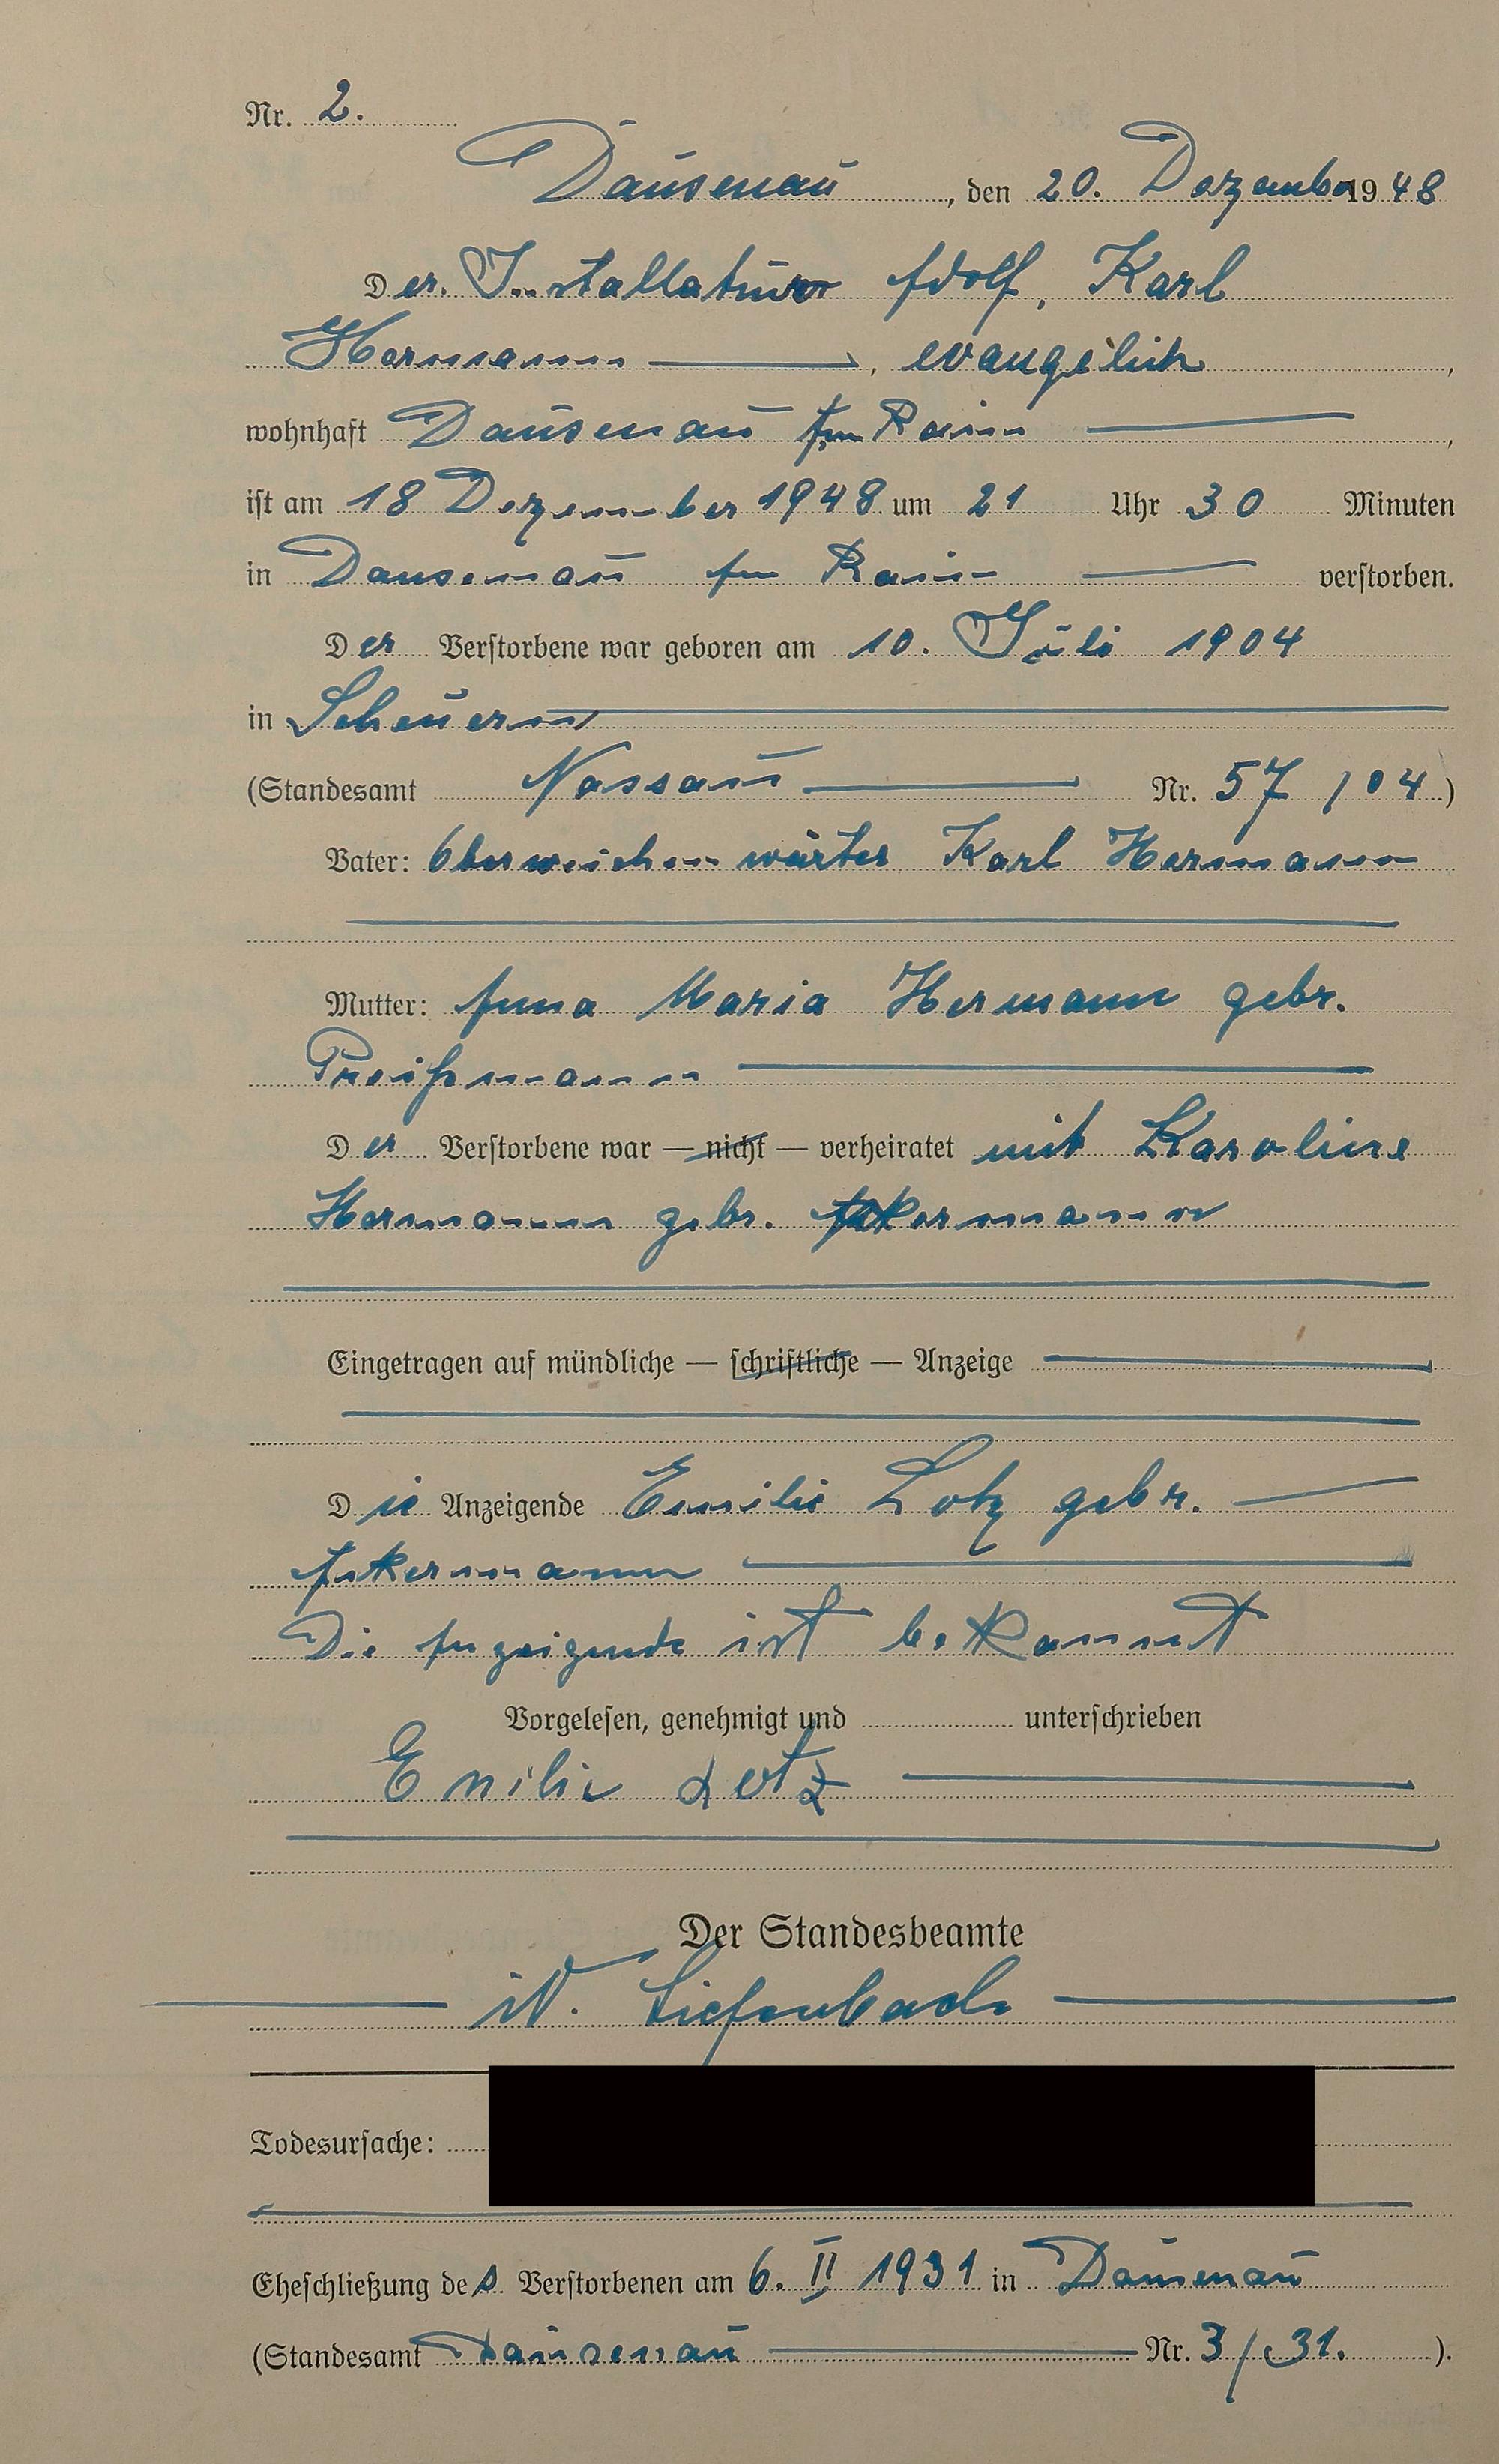 Nr. 2.
Dausenau, den 20. Dezember 1948
Der Installateur Adolf, Karl
Hermann, evangelisch,
wohnhaft Dausenau Am Rain,
ist am 18 Dezember 1948 um 21 Uhr 30 Minuten
in Dausenau Am Rain verstorben.
Der Verstorbene war geboren am 10. Juli 1904
in Scheuern
(Standesamt Nassau Nr. 57/04)
Vater: Oberweichenwärter Karl Hermann
Mutter: Anna Maria Hermann gebr.
Preißmann
Der Verstorbene war — nicht — verheiratet mit Karoline
Hermann gebr. Ackermann
Eingetragen auf mündliche — schriftliche — Anzeige
Die Anzeigende Emilie Lotz gebr. —
Ackermann
Die Anzeigende ist bekannt
Vorgelesen, genehmigt und unterschrieben
Emilie Lotz
Der Standesbeamte
iV. Liefenbach
Todesursache:
Eheschließung des Verstorbenen am 6. II 1931 in Dausenau
(Standesamt Dausenau Nr. 3/31.).